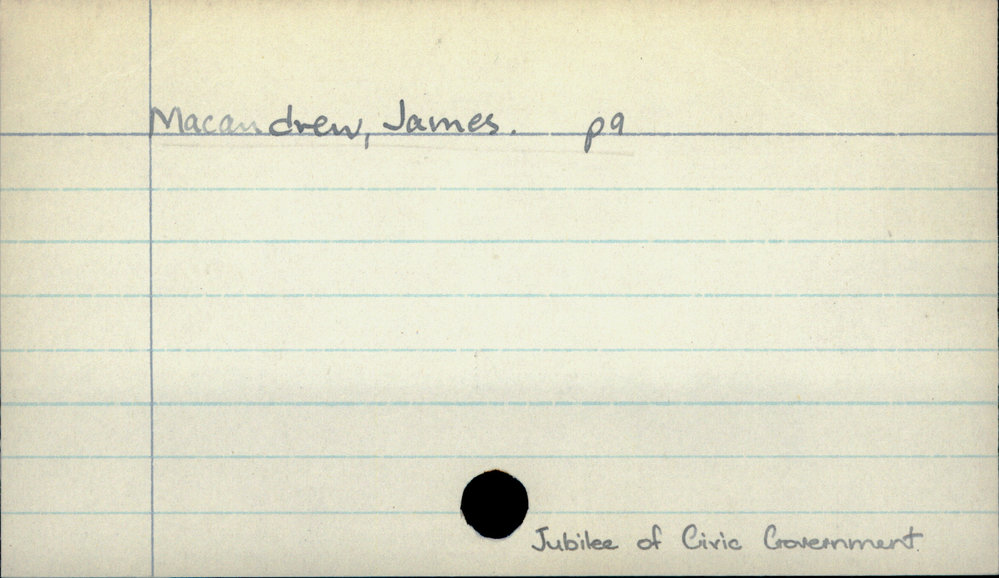 Macandrew, James. p9
Jubilee of Civic Government.